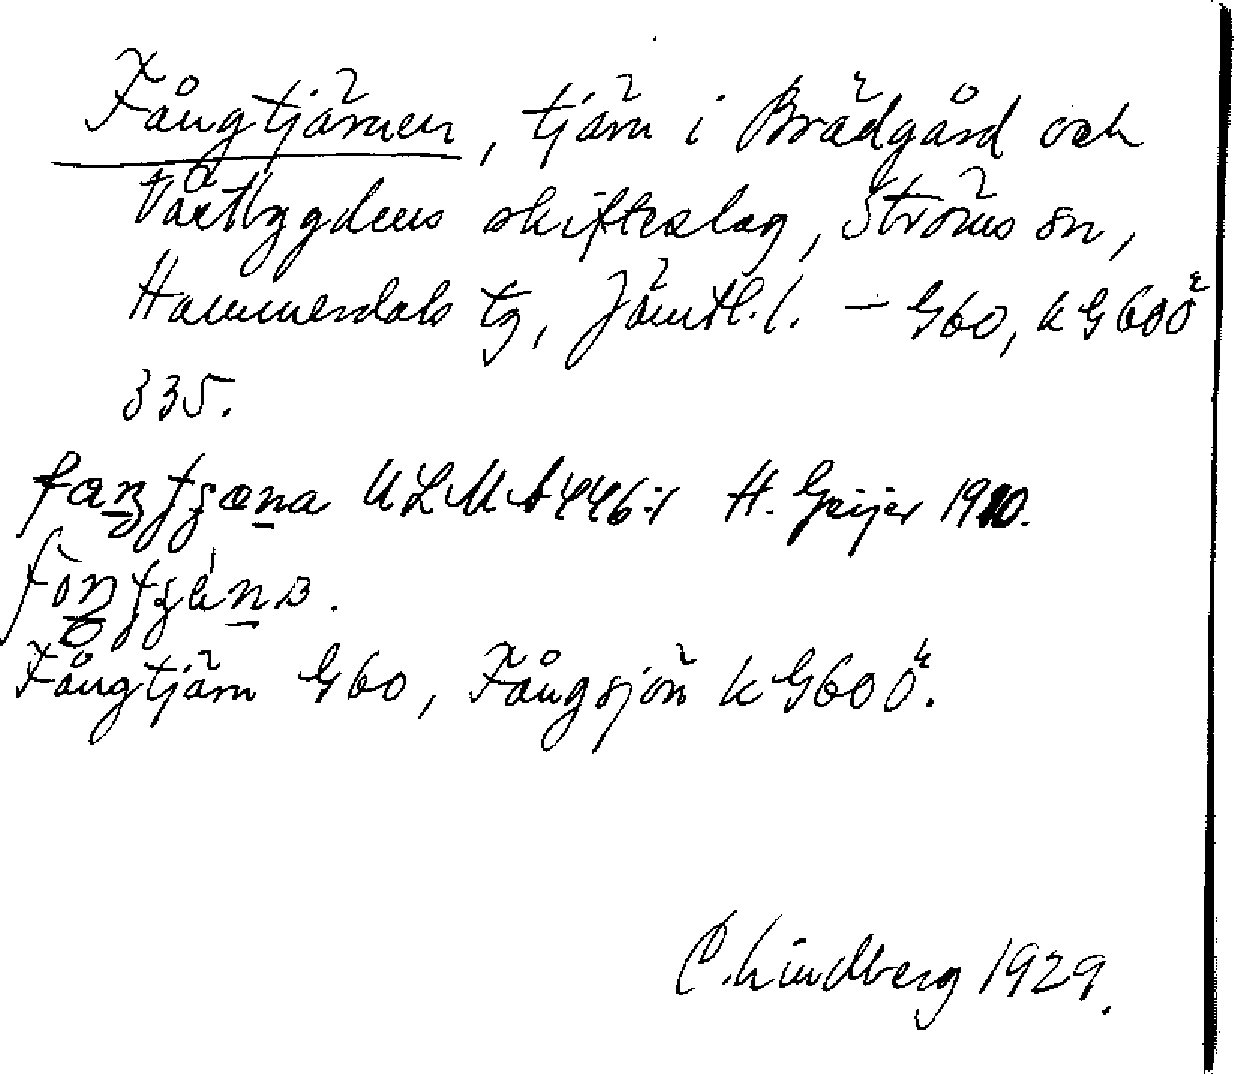 Fångtjärnen, tjärn i Brädgård och
Tåxtbygdens skifteslag, Ströms sn,
Hammerdals tg, Jämtl. l. – G60, kG60Ö
335.
ULMA 446:1 H. Geijer 1910.
Fångtjärn G60, Fångsjön kG60Ö.
C. Lindberg 1929.